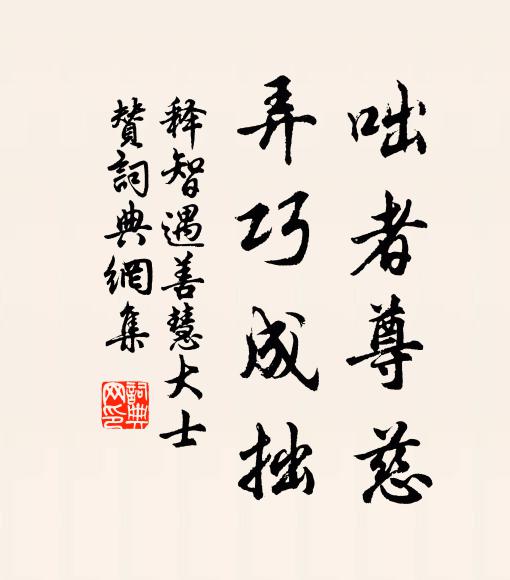 咄者尊慈
弄巧成拙
释智遇善慧大士
赞詞典網集
詞典网印